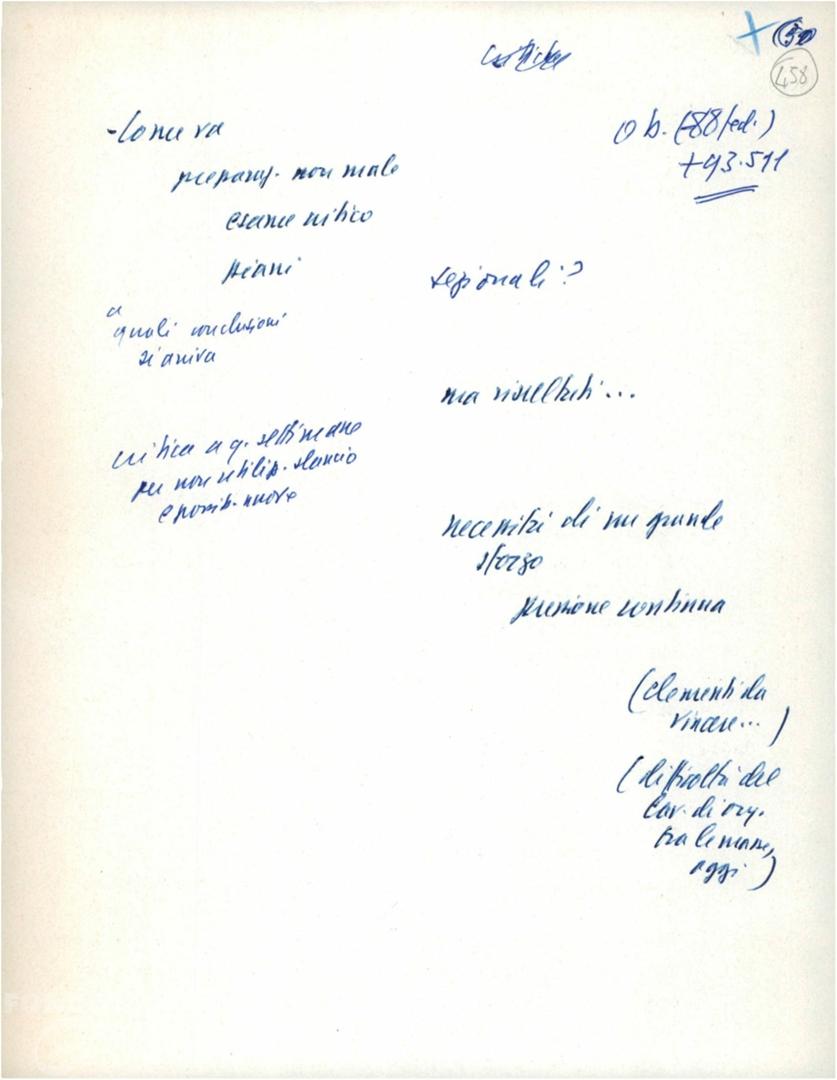 critiche
458
- Come va
ob. (-88 fed.)
+93.511
preparaz. non male
esame critico
piani
regionali?
a
quali conclusioni
si arriva
ma risultati...
critica a q. settimane
per non utilizz. slancio
e possib. nuove
necessità di un grande
sforzo
pressione continua
(elementi da
vincere...)
(difficoltà del
lav. di org.
tra le masse,
oggi)